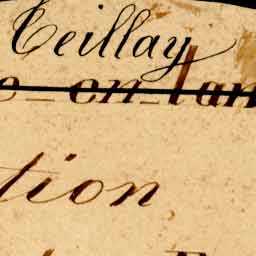 Teillay
e-en-lan
tion